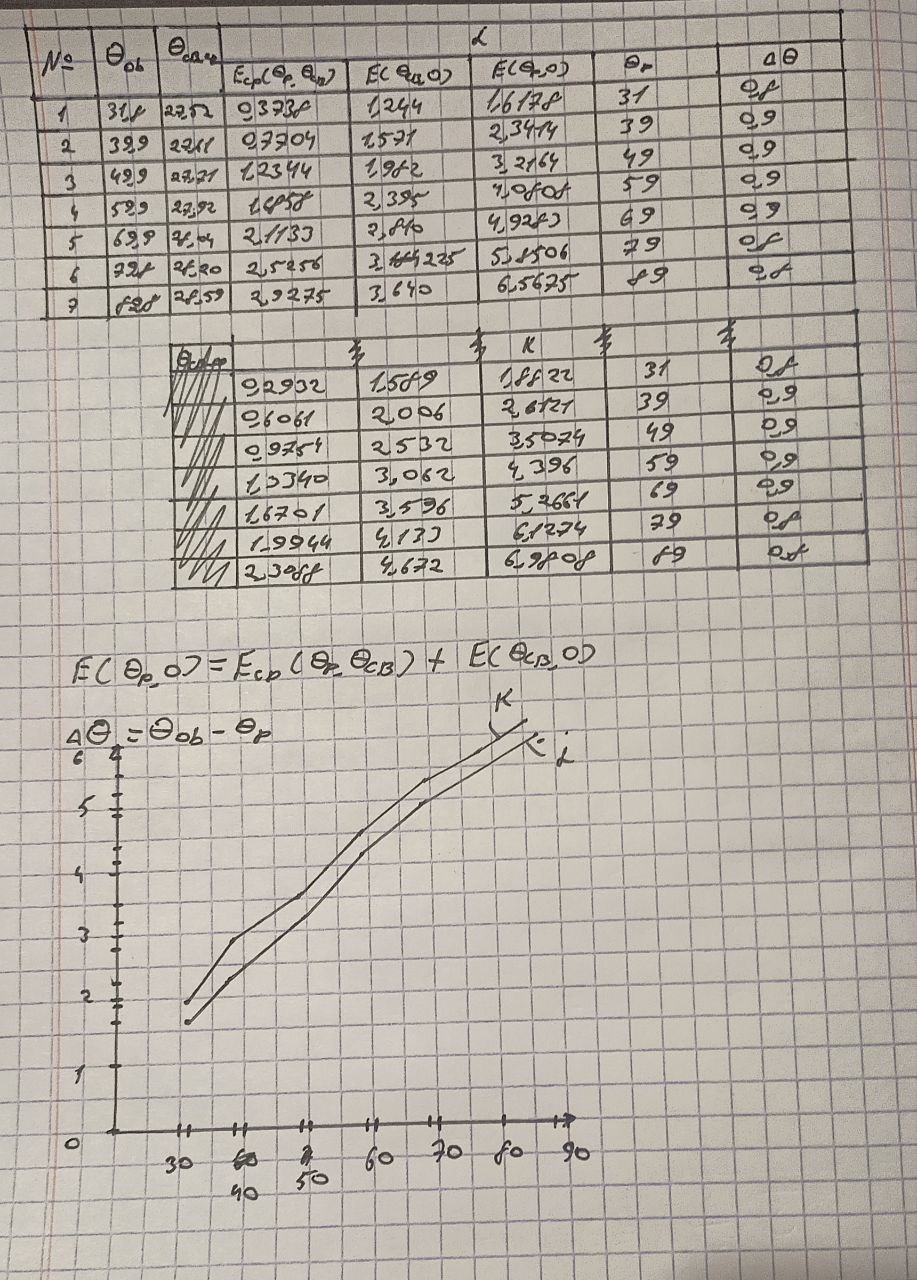 № Θob Θсв.к L
Eср(Θp, Θсв) E(Θсв,0) E(Θp,0) Θp ΔΘ
1 31,8 27,52 0,3738 1,244 1,6178 31 0,8
2 39,9 27,61 0,7704 1,571 2,3414 39 0,9
3 49,9 27,71 1,2344 1,982 3,2164 49 0,9
4 59,9 27,92 1,6858 2,395 4,0808 59 0,9
5 69,9 28,04 2,1133 2,810 4,9283 69 0,9
6 79,8 28,20 2,5256 3,225 5,8506 79 0,8
7 89,8 28,59 2,9275 3,640 6,5675 89 0,8
K
0,2932 1,589 1,8822 31 0,8
0,6061 2,006 2,6121 39 0,9
0,9754 2,532 3,5074 49 0,9
1,3340 3,062 4,396 59 0,9
1,6701 3,596 5,2661 69 0,9
1,9944 4,133 6,1274 79 0,8
2,3088 4,672 6,9808 89 0,8
E(Θp,0) = Eср(Θp,Θсв) + E(Θсв,0)
ΔΘ = Θob - Θp
K
L
6
5
4
3
2
1
0
30 40 50 60 70 80 90